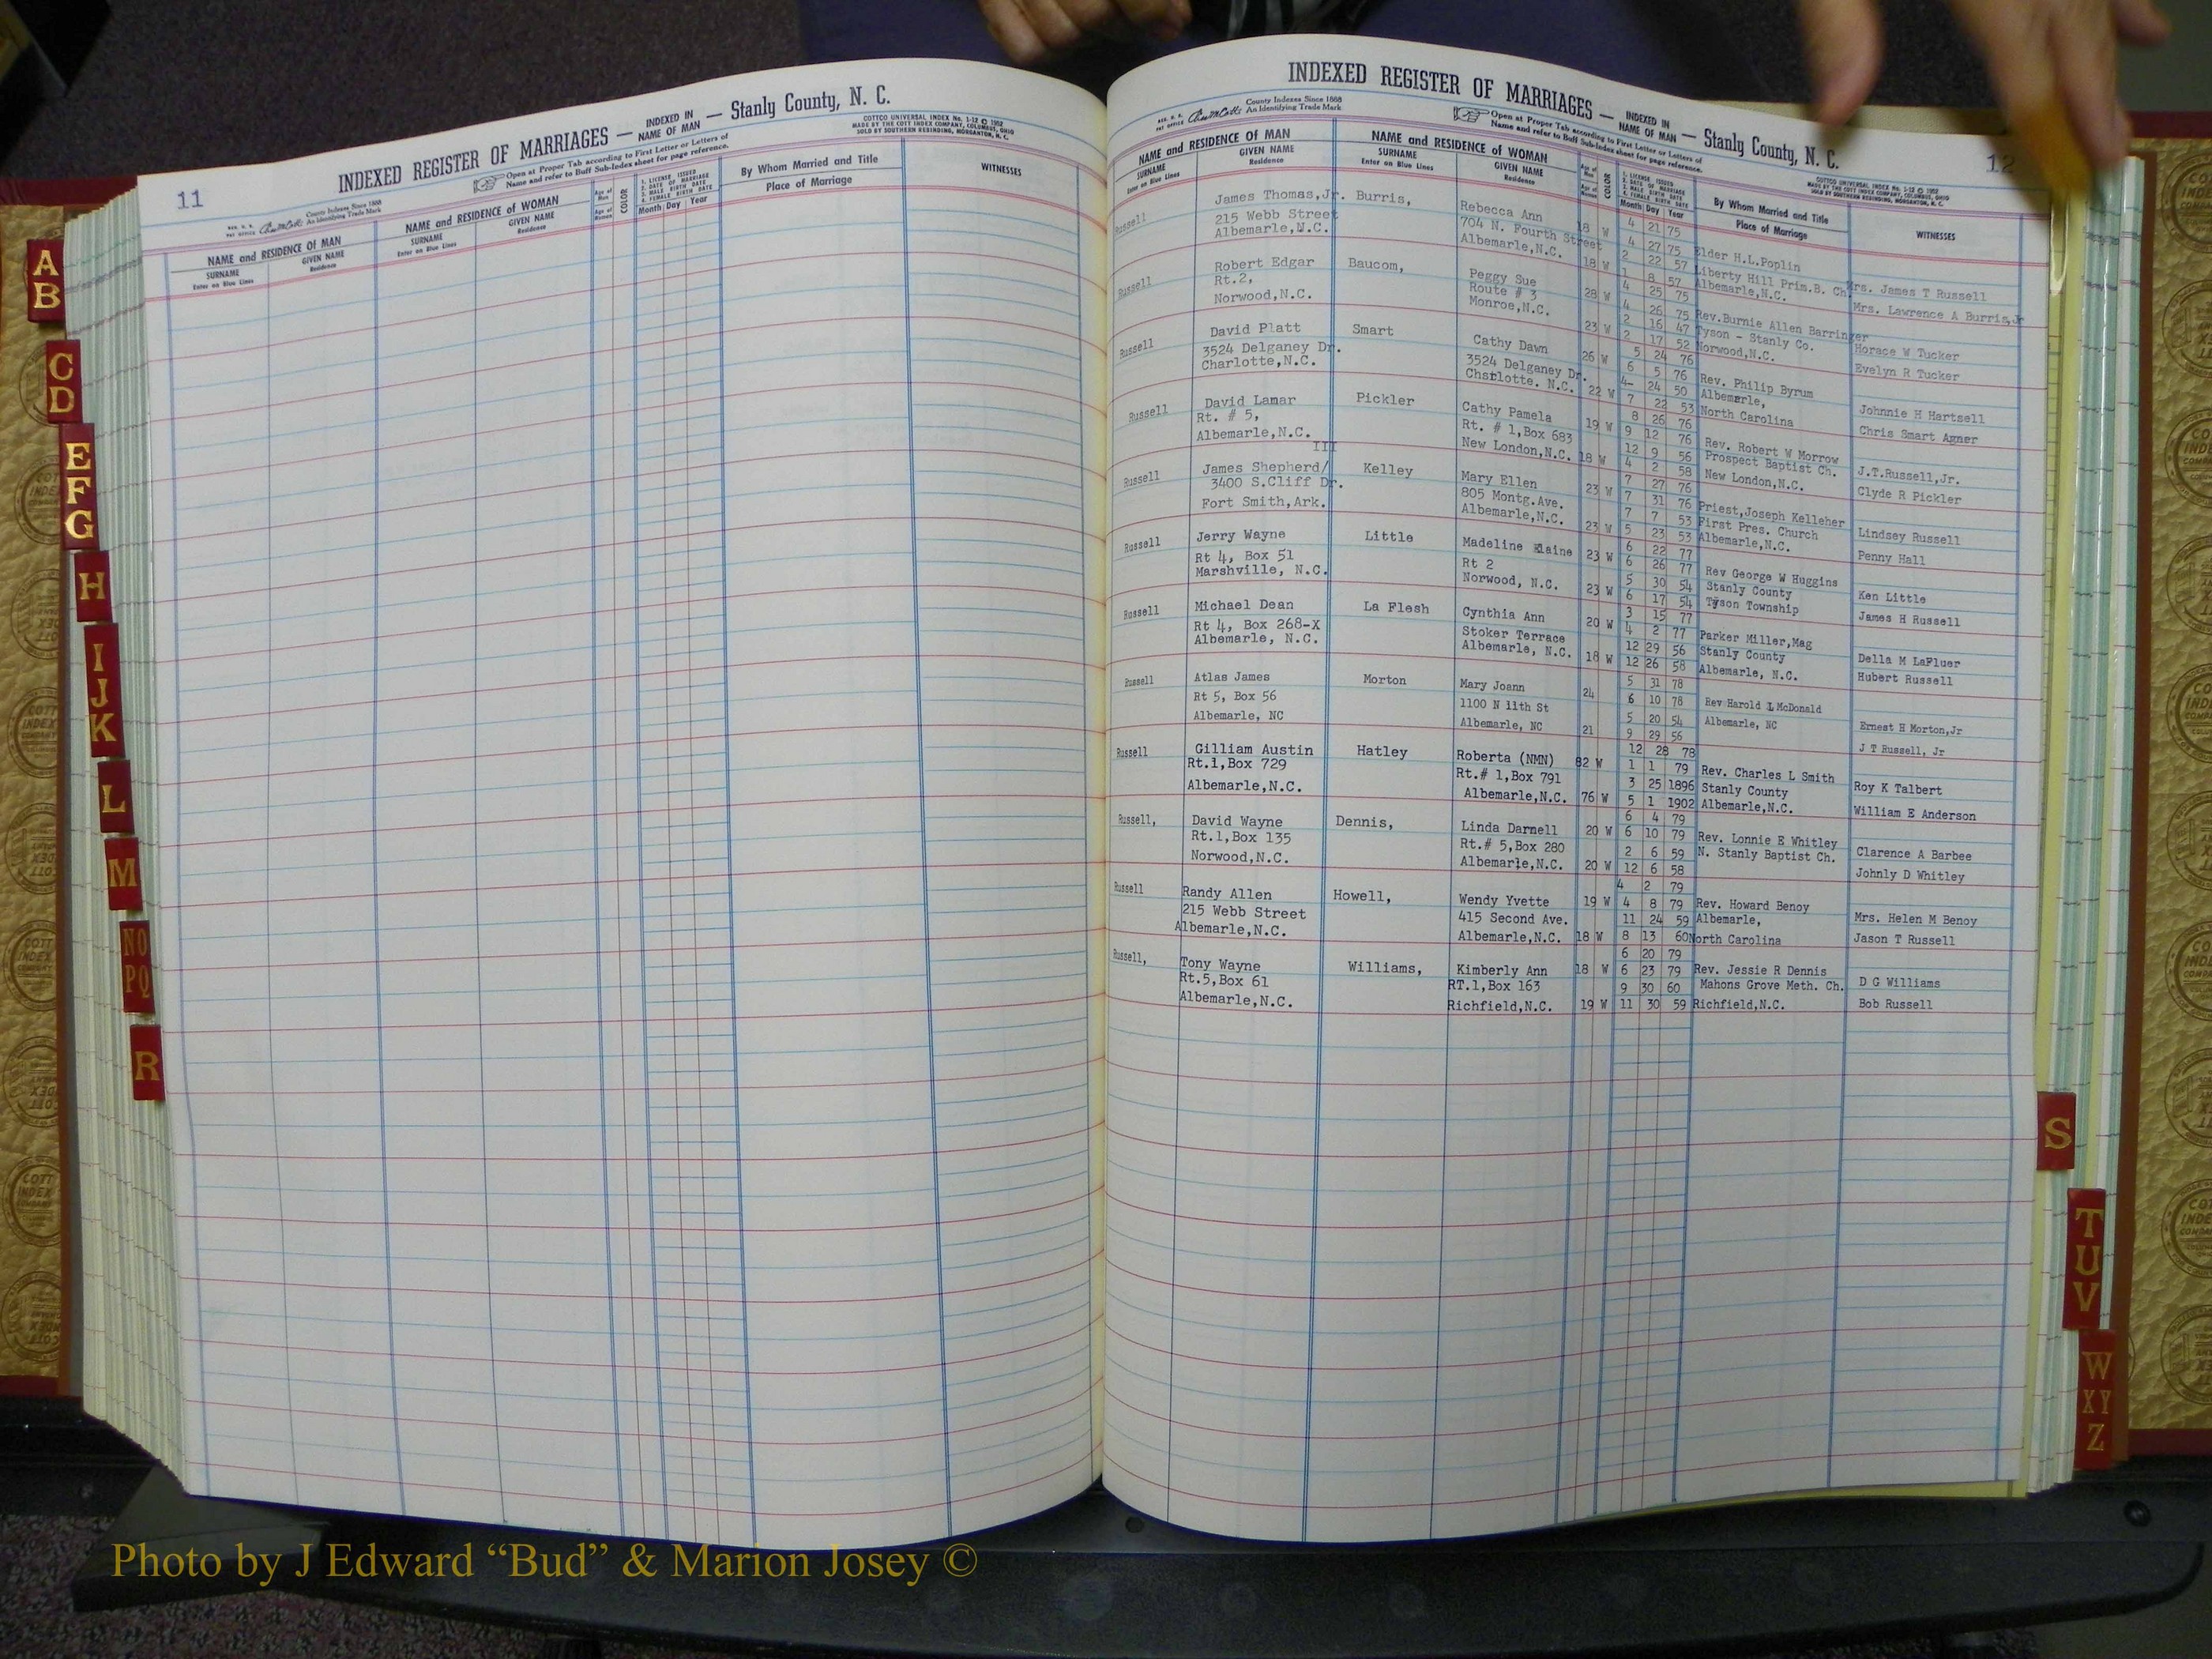 11
INDEXED REGISTER OF MARRIAGES — INDEXED IN NAME OF MAN — Stanly County, N. C.
County Indexes Since 1888
An Identifying Trade Mark
Open at Proper Tab according to First Letter or Letters of
Name and refer to Buff Sub-Index sheet for page reference.
COTTCO UNIVERSAL INDEX No. 1-12 © 1952
MADE BY THE COTT INDEX COMPANY, COLUMBUS, OHIO
SOLD BY SOUTHERN REBINDING, MORGANTON, N. C.
NAME and RESIDENCE OF MAN
SURNAME
Enter on Blue Lines
GIVEN NAME
Residence
NAME and RESIDENCE OF WOMAN
SURNAME
Enter on Blue Lines
GIVEN NAME
Residence
Age of Man
Age of Woman
COLOR
1. LICENSE ISSUED
2. DATE OF MARRIAGE
3. MALE BIRTH DATE
4. FEMALE BIRTH DATE
Month Day Year
By Whom Married and Title
Place of Marriage
WITNESSES
12
INDEXED REGISTER OF MARRIAGES — INDEXED IN NAME OF MAN — Stanly County, N. C.
County Indexes Since 1888
An Identifying Trade Mark
Open at Proper Tab according to First Letter or Letters of
Name and refer to Buff Sub-Index sheet for page reference.
COTTCO UNIVERSAL INDEX No. 1-12 © 1952
MADE BY THE COTT INDEX COMPANY, COLUMBUS, OHIO
SOLD BY SOUTHERN REBINDING, MORGANTON, N. C.
NAME and RESIDENCE OF MAN
SURNAME
Enter on Blue Lines
GIVEN NAME
Residence
NAME and RESIDENCE OF WOMAN
SURNAME
Enter on Blue Lines
GIVEN NAME
Residence
Age of Man
Age of Woman
COLOR
1. LICENSE ISSUED
2. DATE OF MARRIAGE
3. MALE BIRTH DATE
4. FEMALE BIRTH DATE
Month Day Year
By Whom Married and Title
Place of Marriage
WITNESSES
Russell James Thomas,Jr. Burris, Rebecca Ann 18 W 4 21 75
215 Webb Street 704 N. Fourth Street 4 27 75 Elder H.L.Poplin
Albemarle,N.C. Albemarle,N.C. 18 W 2 22 57 Liberty Hill Prim.B. Ch. Mrs. James T Russell
1 8 57 Albemarle,N.C. Mrs. Lawrence A Burris,Jr
Russell Robert Edgar Baucom, Peggy Sue 28 W 4 25 75
Rt.2, Route # 3 4 26 75 Rev.Burnie Allen Barringer
Norwood,N.C. Monroe,N.C. 23 W 2 16 47 Tyson - Stanly Co. Horace W Tucker
2 17 52 Norwood,N.C. Evelyn R Tucker
Russell David Platt Smart Cathy Dawn 26 W 5 24 76
3524 Delganey Dr. 3524 Delganey Dr. 6 5 76 Rev. Philip Byrum
Charlotte,N.C. Chstlotte. N.C. 22 W 4- 24 50 Albemarle, Johnnie H Hartsell
7 22 53 North Carolina Chris Smart Agner
Russell David Lamar Pickler Cathy Pamela 19 W 8 26 76
Rt. # 5, Rt. # 1,Box 683 9 12 76 Rev. Robert W Morrow
Albemarle,N.C. New London,N.C. 18 W 12 9 56 Prospect Baptist Ch. J.T.Russell,Jr.
4 2 58 New London,N.C. Clyde R Pickler
III
Russell James Shepherd/ Kelley Mary Ellen 23 W 7 27 76
3400 S.Cliff Dr. 805 Montg.Ave. 7 31 76 Priest,Joseph Kelleher
Fort Smith,Ark. Albemarle,N.C. 23 W 7 7 53 First Pres. Church Lindsey Russell
5 23 53 Albemarle,N.C. Penny Hall
Russell Jerry Wayne Little Madeline Elaine 23 W 6 22 77
Rt 4, Box 51 Rt 2 6 26 77 Rev George W Huggins
Marshville, N.C. Norwood, N.C. 23 W 5 30 54 Stanly County Ken Little
6 17 54 Tyson Township James H Russell
Russell Michael Dean La Flesh Cynthia Ann 20 W 3 15 77
Rt 4, Box 268-X Stoker Terrace 4 2 77 Parker Miller,Mag
Albemarle, N.C. Albemarle, N.C. 18 W 12 29 56 Stanly County Della M LaFluer
12 26 58 Albemarle, N.C. Hubert Russell
Russell Atlas James Morton Mary Joann 24 5 31 78
Rt 5, Box 56 1100 N 11th St 6 10 78 Rev Harold L McDonald
Albemarle, NC Albemarle, NC 21 5 20 54 Albemarle, NC Ernest H Morton,Jr
9 29 56 J T Russell, Jr
Russell Gilliam Austin Hatley Roberta (NMN) 82 W 12 28 78
Rt.1,Box 729 Rt.# 1,Box 791 1 1 79 Rev. Charles L Smith
Albemarle,N.C. Albemarle,N.C. 76 W 3 25 1896 Stanly County Roy K Talbert
5 1 1902 Albemarle,N.C. William E Anderson
Russell, David Wayne Dennis, Linda Darnell 20 W 6 4 79
Rt.1,Box 135 Rt.# 5,Box 280 6 10 79 Rev. Lonnie E Whitley
Norwood,N.C. Albemarle,N.C. 20 W 2 6 59 N. Stanly Baptist Ch. Clarence A Barbee
12 6 58 Johnly D Whitley
Russell Randy Allen Howell, Wendy Yvette 19 W 4 2 79
215 Webb Street 415 Second Ave. 4 8 79 Rev. Howard Benoy
Albemarle,N.C. Albemarle,N.C. 18 W 11 24 59 Albemarle, Mrs. Helen M Benoy
8 13 60 North Carolina Jason T Russell
Russell, Tony Wayne Williams, Kimberly Ann 18 W 6 20 79
Rt.5,Box 61 RT.1,Box 163 6 23 79 Rev. Jessie R Dennis
Albemarle,N.C. Richfield,N.C. 19 W 9 30 60 Mahons Grove Meth. Ch. D G Williams
11 30 59 Richfield,N.C. Bob Russell
A
B
C
D
E
F
G
H
I
J
K
L
M
NO
PQ
R
S
T
U
V
W
XY
Z
Photo by J Edward “Bud” & Marion Josey ©